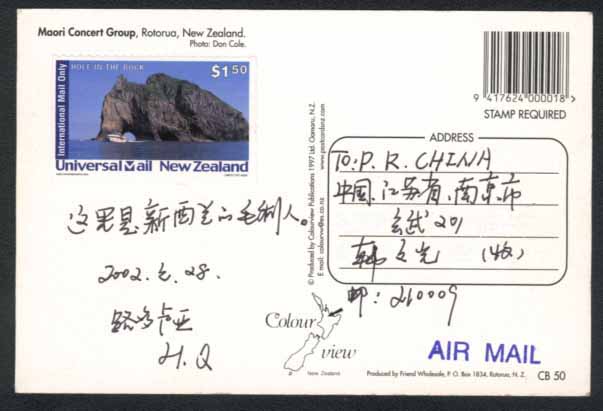 Maori Concert Group, Rotorua, New Zealand.
Photo: Don Cole.
International Mail Only
HOLE IN THE ROCK
$1.50
Universal Mail New Zealand
9 417624 000018 >
STAMP REQUIRED
© Produced by Colourview Publications 1997 Ltd. Oamaru, N.Z.
www.postcardsnz.com
E mail: colourvw@es.co.nz
ADDRESS
TO: P. R. CHINA
中国.江苏省.南京市
玄武 201
韩 光 (收)
邮: 210009
这里是新西兰的毛利人。
2002. 2. 28.
路多卢亚
H.Q
Colour
view
New Zealand
AIR MAIL
Produced by Friend Wholesale, P. O. Box 1834, Rotorua, N. Z.
CB 50